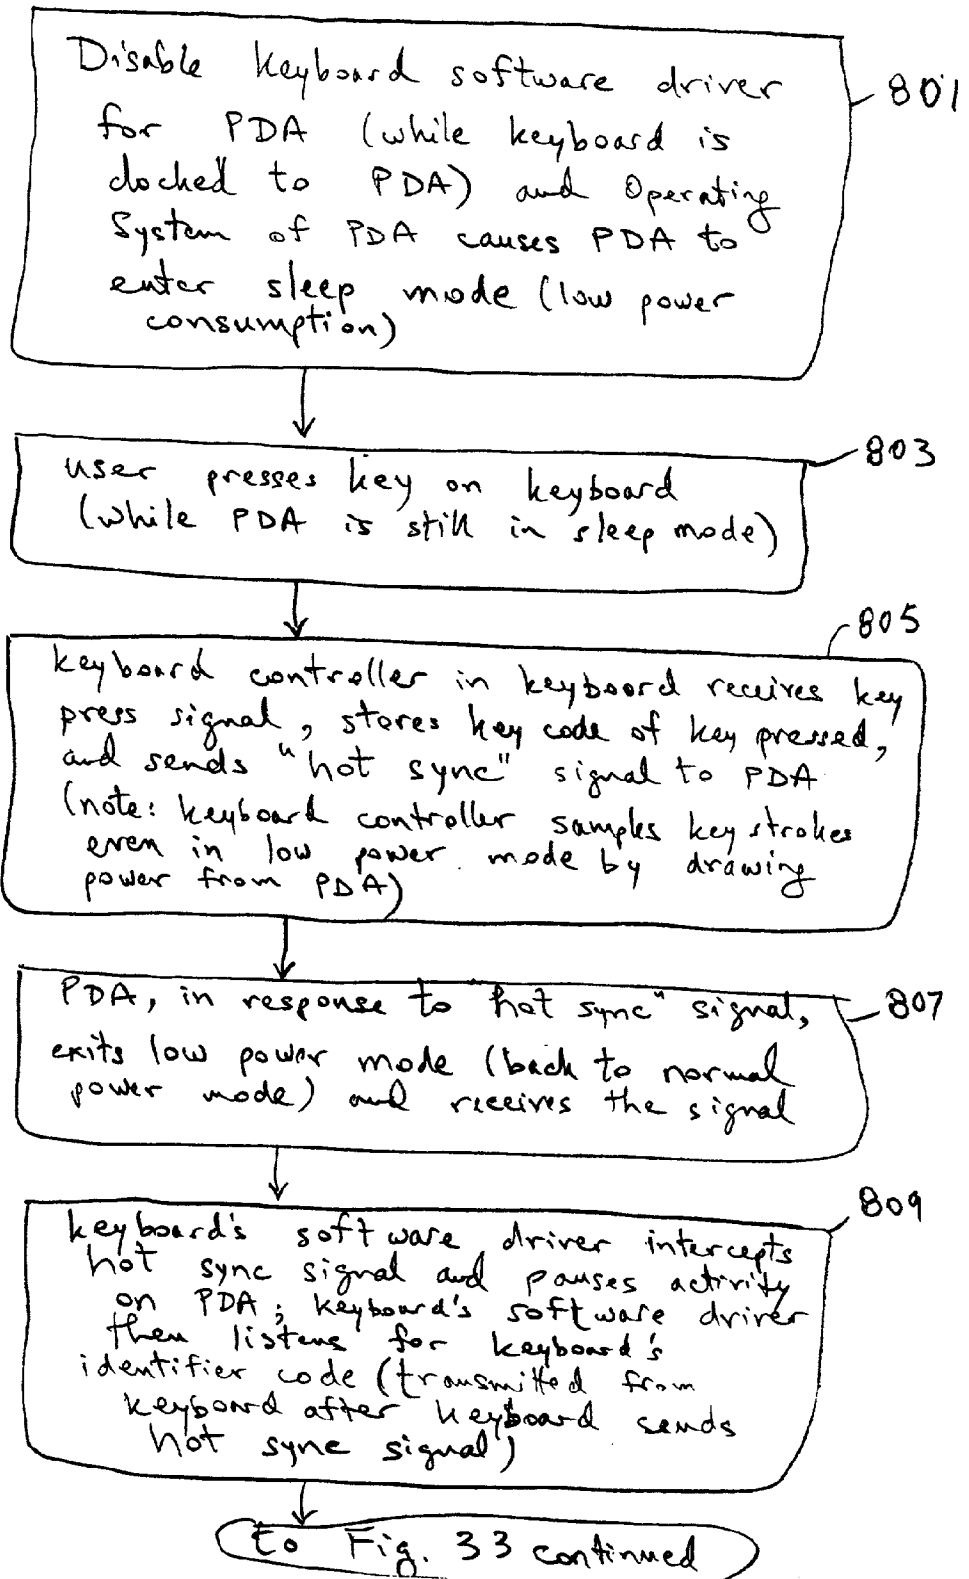 Disable keyboard software driver
801
for PDA (while keyboard is
docked to PDA) and Operating
System of PDA causes PDA to
enter sleep mode (low power
consumption)
803
user presses key on keyboard
(while PDA is still in sleep mode)
805
keyboard controller in keyboard receives key
press signal, stores key code of key pressed,
and sends "hot sync" signal to PDA
(note: keyboard controller samples key strokes
even in low power mode by drawing
power from PDA)
PDA, in response to "hot sync" signal,
807
exits low power mode (back to normal
power mode) and receives the signal
809
keyboard's software driver intercepts
hot sync signal and pauses activity
on PDA; keyboard's software driver
then listens for keyboard's
identifier code (transmitted from
keyboard after keyboard sends
hot sync signal)
to Fig. 33 continued